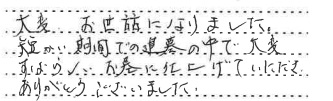 大変 お世話になりました。
短かい時間での建墓の中で大変
すばらしいお墓に仕上げていただき
ありがとうございました。